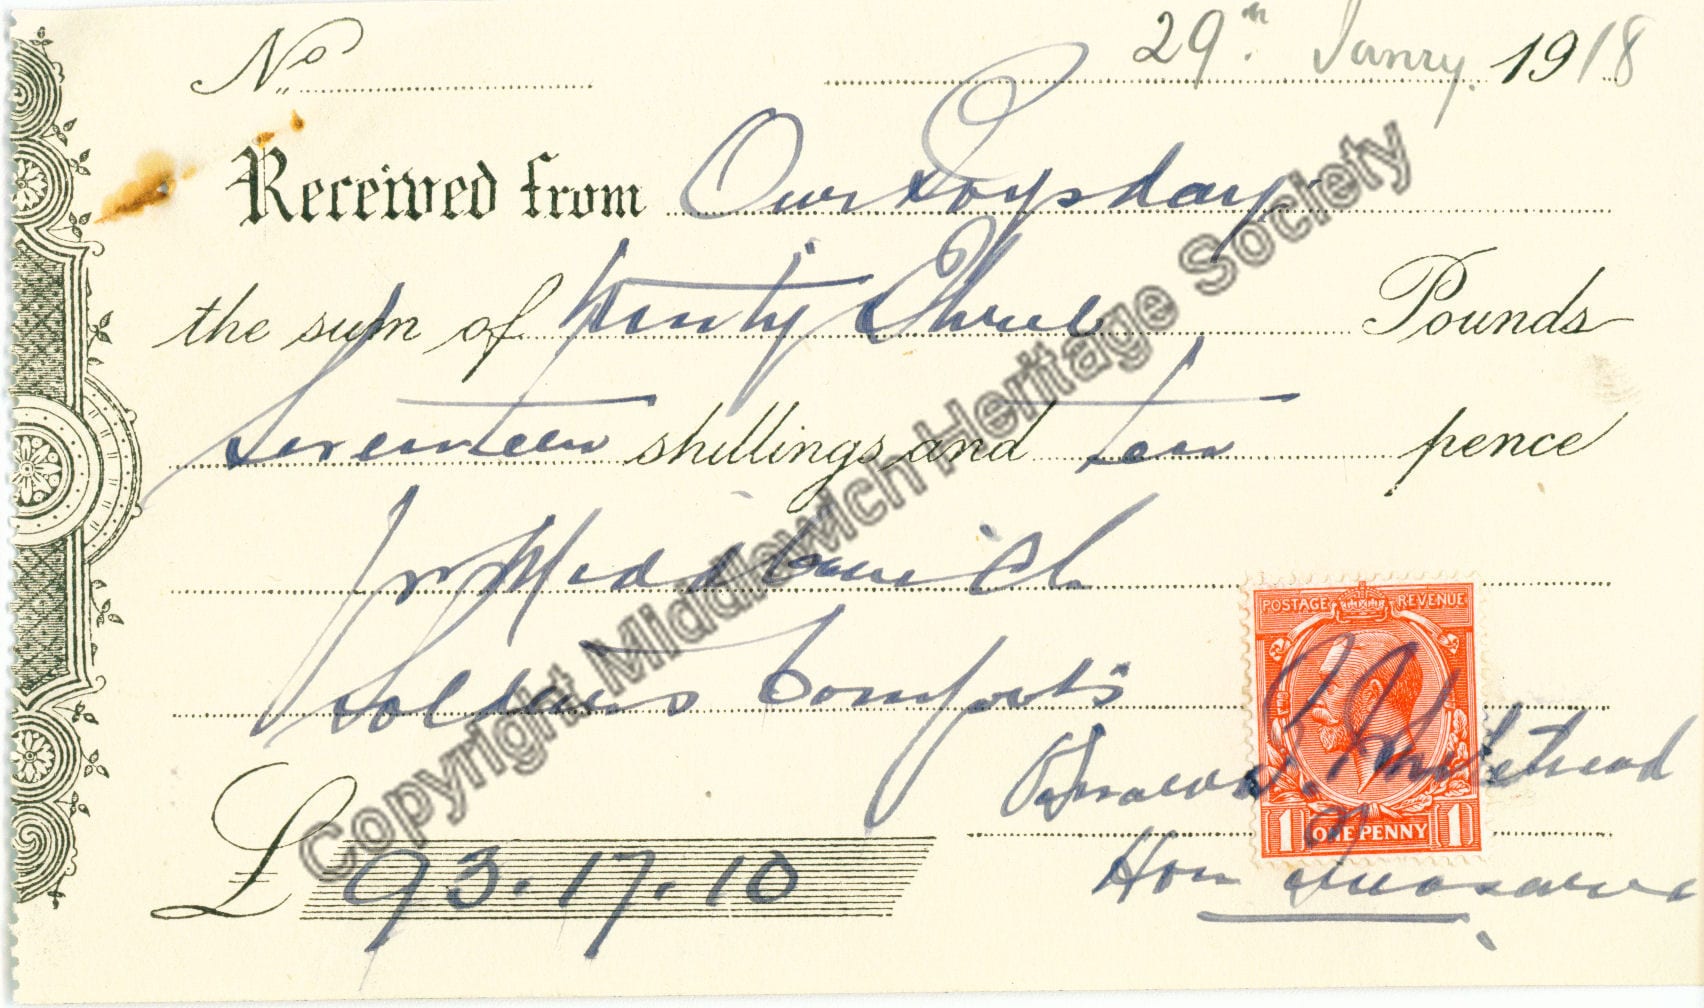 No 29th Janry. 1918
Received from Our boys day
the sum of Ninety Three Pounds
Seventeen shillings and ten pence
for Middlewich
Soldiers Comforts
POSTAGE REVENUE
Whitehead
1 ONE PENNY 1
Hon Treasurer
£ 93.17.10
Copyright Middlewich Heritage Society